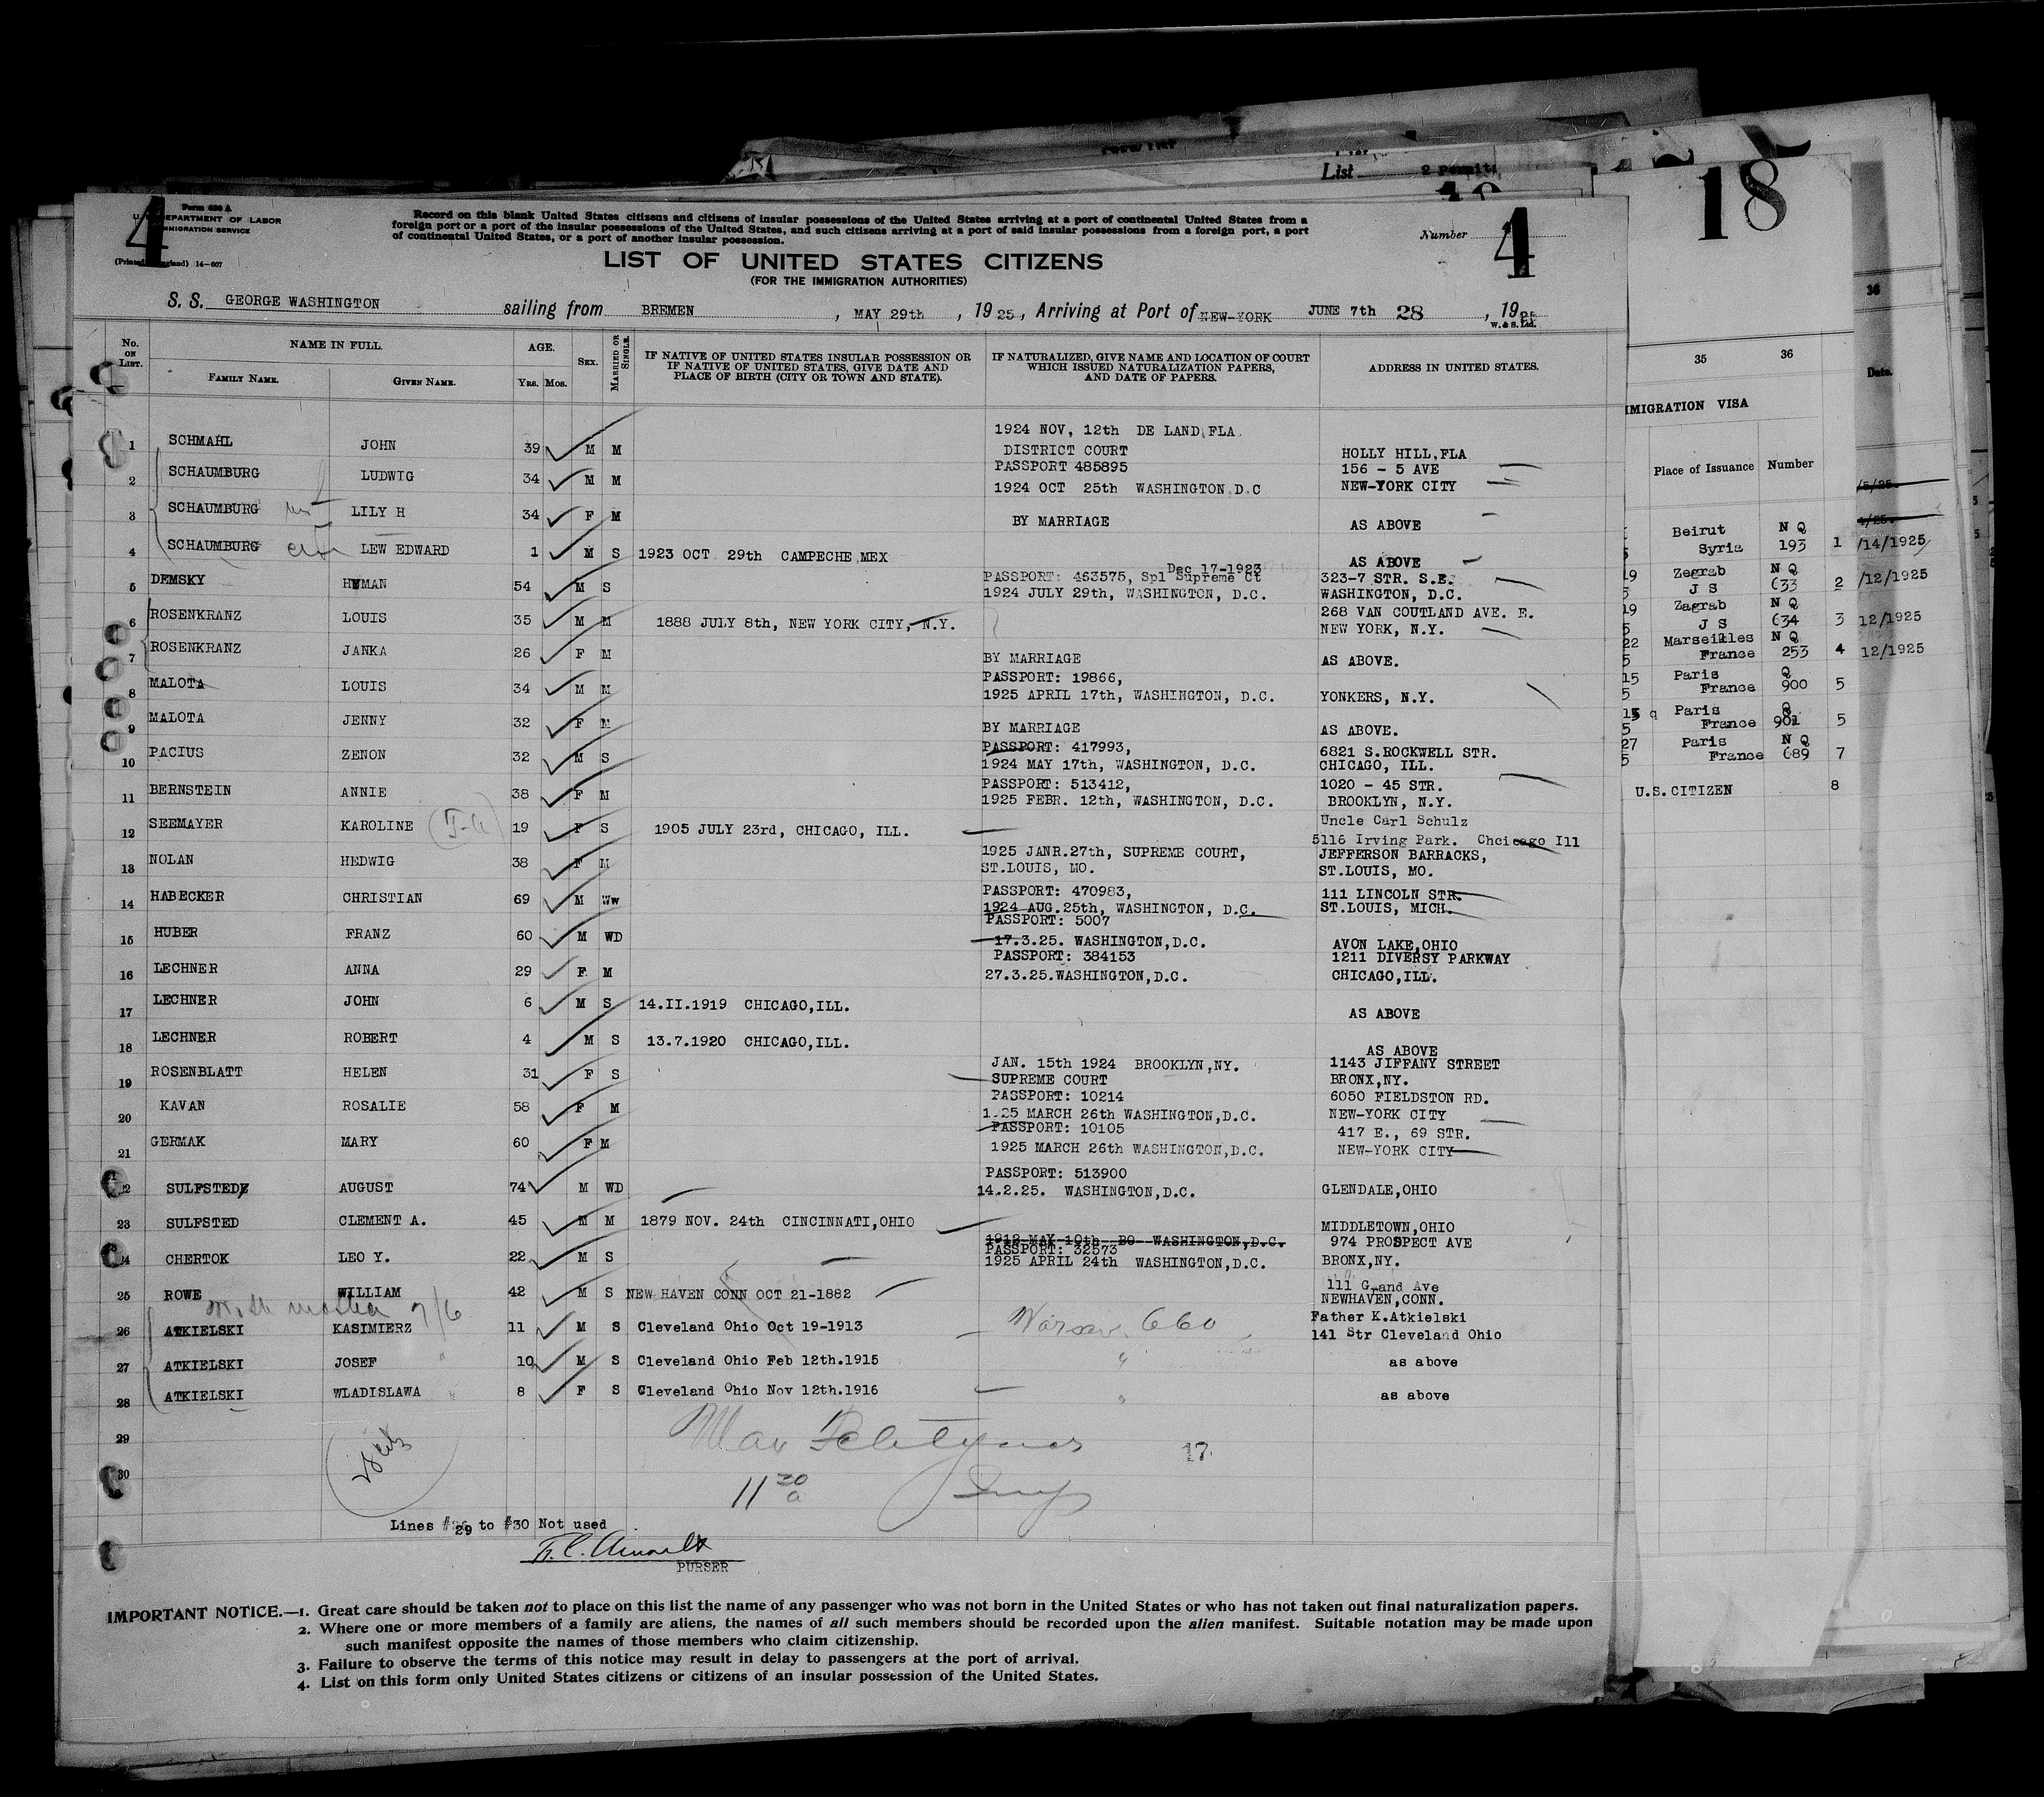 List 2 Permits
18
4
Form 630 A
U. S. DEPARTMENT OF LABOR
IMMIGRATION SERVICE
(Printed England) 14-607
Record on this blank United States citizens and citizens of insular possessions of the United States arriving at a port of continental United States from a
foreign port or a port of the insular possessions of the United States, and such citizens arriving at a port of said insular possessions from a foreign port, a port
of continental United States, or a port of another insular possession.
Number 4
LIST OF UNITED STATES CITIZENS
(FOR THE IMMIGRATION AUTHORITIES)
S. S. GEORGE WASHINGTON sailing from BREMEN, MAY 29th, 1925, Arriving at Port of NEW-YORK JUNE 7th 28, 19
W. & S. Ltd.
No. ON LIST. NAME IN FULL. AGE. SEX. MARRIED OR SINGLE. IF NATIVE OF UNITED STATES INSULAR POSSESSION OR IF NATIVE OF UNITED STATES, GIVE DATE AND PLACE OF BIRTH (CITY OR TOWN AND STATE). IF NATURALIZED, GIVE NAME AND LOCATION OF COURT WHICH ISSUED NATURALIZATION PAPERS, AND DATE OF PAPERS. ADDRESS IN UNITED STATES.
FAMILY NAME. GIVEN NAME. YRS. MOS.
1 SCHMAHL JOHN 39 M M 1924 NOV, 12th DE LAND, FLA. DISTRICT COURT HOLLY HILL, FLA
2 SCHAUMBURG LUDWIG 34 M M PASSPORT 485895 1924 OCT 25th WASHINGTON D.C 156 - 5 AVE NEW-YORK CITY
3 SCHAUMBURG LILY H 34 F M BY MARRIAGE AS ABOVE
4 SCHAUMBURG LEW EDWARD 1 M S 1923 OCT 29th CAMPECHE MEX AS ABOVE
5 DEMSKY HYMAN 54 M S PASSPORT: 463575, Spl Supreme Ct Dec 17-1923 1924 JULY 29th, WASHINGTON, D.C. 323-7 STR. S.E. WASHINGTON, D.C.
6 ROSENKRANZ LOUIS 35 M M 1888 JULY 8th, NEW YORK CITY, N.Y. 268 VAN COUTLAND AVE. E. NEW YORK, N.Y.
7 ROSENKRANZ JANKA 26 F M BY MARRIAGE AS ABOVE.
8 MALOTA LOUIS 34 M M PASSPORT: 19866, 1925 APRIL 17th, WASHINGTON, D.C. YONKERS, N.Y.
9 MALOTA JENNY 32 F M BY MARRIAGE AS ABOVE.
10 PACIUS ZENON 32 M S PASSPORT: 417993, 1924 MAY 17th, WASHINGTON, D.C. 6821 S.ROCKWELL STR. CHICAGO, ILL.
11 BERNSTEIN ANNIE 38 F M PASSPORT: 513412, 1925 FEBR. 12th, WASHINGTON, D.C. 1020 - 45 STR. BROOKLYN, N.Y.
12 SEEMAYER KAROLINE 19 F S 1905 JULY 23rd, CHICAGO, ILL. Uncle Carl Schulz 5116 Irving Park. Chcicago Ill
13 NOLAN HEDWIG 38 F M 1925 JANR.27th, SUPREME COURT, ST.LOUIS, MO. JEFFERSON BARRACKS, ST.LOUIS, MO.
14 HABECKER CHRISTIAN 69 M Ww PASSPORT: 470983, 1924 AUG.25th, WASHINGTON, D.C. 111 LINCOLN STR. ST.LOUIS, MICH.
15 HUBER FRANZ 60 M WD PASSPORT: 5007 17.3.25. WASHINGTON,D.C. AVON LAKE,OHIO
16 LECHNER ANNA 29 F M PASSPORT: 384153 27.3.25.WASHINGTON,D.C. 1211 DIVERSY PARKWAY CHICAGO,ILL.
17 LECHNER JOHN 6 M S 14.II.1919 CHICAGO,ILL. AS ABOVE
18 LECHNER ROBERT 4 M S 13.7.1920 CHICAGO,ILL. AS ABOVE
19 ROSENBLATT HELEN 31 F S JAN. 15th 1924 BROOKLYN,NY. SUPREME COURT 1143 JIFFANY STREET BRONX,NY.
20 KAVAN ROSALIE 58 F M PASSPORT: 10214 1925 MARCH 26th WASHINGTON,D.C. 6050 FIELDSTON RD. NEW-YORK CITY
21 GERMAK MARY 60 F M PASSPORT: 10105 1925 MARCH 26th WASHINGTON,D.C. 417 E., 69 STR. NEW-YORK CITY
22 SULFSTED AUGUST 74 M WD PASSPORT: 513900 14.2.25. WASHINGTON,D.C. GLENDALE,OHIO
23 SULFSTED CLEMENT A. 45 M M 1879 NOV. 24th CINCINNATI,OHIO MIDDLETOWN,OHIO
24 CHERTOK LEO Y. 22 M S 1912 MAY 10th BO WASHINGTON,D.C. PASSPORT: 32573 1925 APRIL 24th WASHINGTON,D.C. 974 PROSPECT AVE BRONX,NY.
25 ROWE WILLIAM 42 M S NEW HAVEN CONN OCT 21-1882 111 Grand Ave NEWHAVEN,CONN.
with mother 7/6
26 ATKIELSKI KASIMIERZ 11 M S Cleveland Ohio Oct 19-1913 Warsaw 660 Father K.Atkielski 141 Str Cleveland Ohio
27 ATKIELSKI JOSEF " 10 M S Cleveland Ohio Feb 12th.1915 " as above
28 ATKIELSKI WLADISLAWA " 8 F S Cleveland Ohio Nov 12th.1916 " as above
29
30
17
11 30 a
Insp
Lines #29 to #30 Not used
PURSER
IMPORTANT NOTICE.—1. Great care should be taken not to place on this list the name of any passenger who was not born in the United States or who has not taken out final naturalization papers.
2. Where one or more members of a family are aliens, the names of all such members should be recorded upon the alien manifest. Suitable notation may be made upon
such manifest opposite the names of those members who claim citizenship.
3. Failure to observe the terms of this notice may result in delay to passengers at the port of arrival.
4. List on this form only United States citizens or citizens of an insular possession of the United States.
35 36
IMIGRATION VISA
Place of Issuance Number
Beirut N Q
Syria 193 1 /14/1925
19 Zegrab N Q
5 J S 633 2 /12/1925
19 Zagrab N Q
5 J S 634 3 12/1925
22 Marseilles N Q
5 France 253 4 12/1925
15 Paris Q
5 France 900 5
15 q Paris Q
5 France 901 5
27 Paris N Q
5 France 689 7
U.S.CITIZEN 8
36
Date.
/5/25.